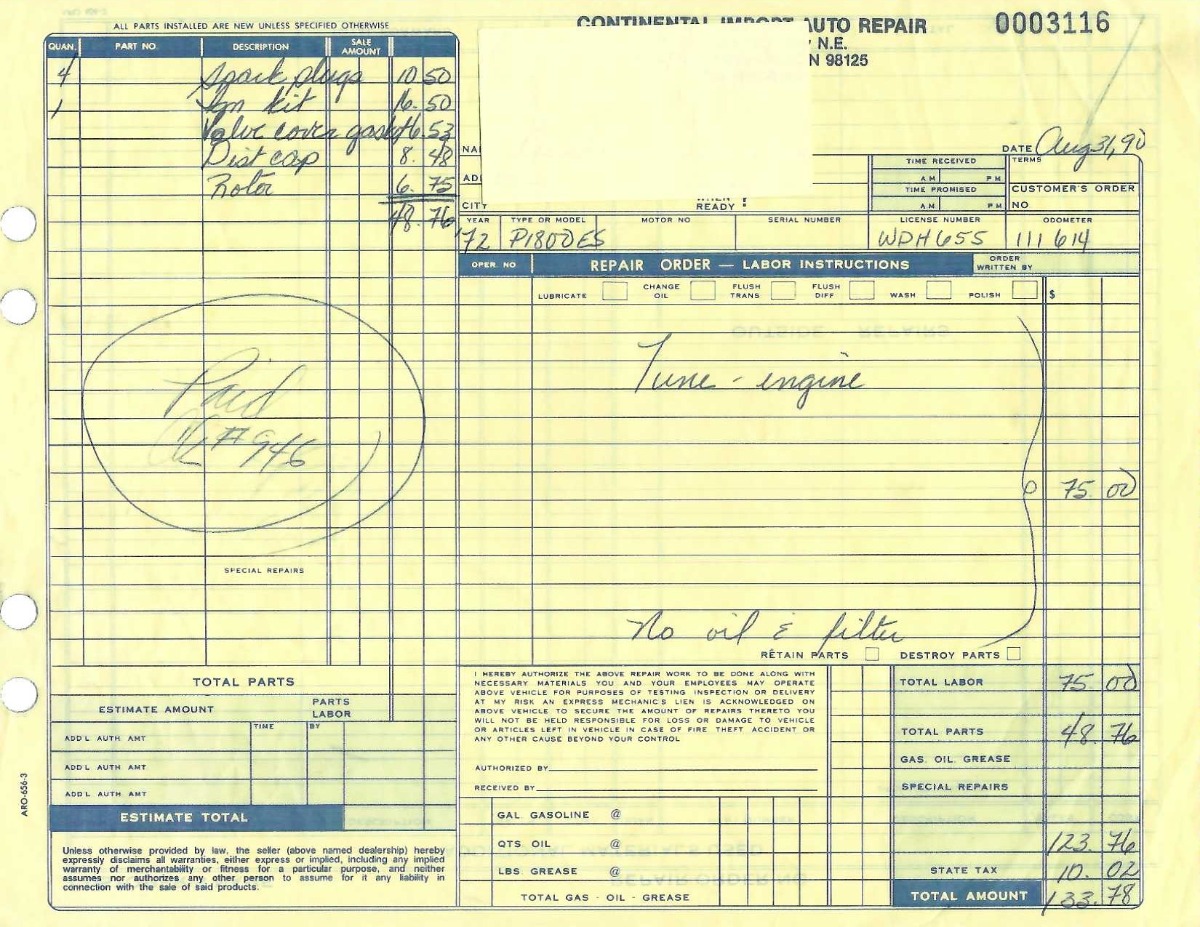 ALL PARTS INSTALLED ARE NEW UNLESS SPECIFIED OTHERWISE
CONTINENTAL IMPORT AUTO REPAIR
0003116
N.E.
N 98125
QUAN. PART NO. DESCRIPTION SALE AMOUNT
4 Spark plugs 10 50
1 Ign kit 16. 50
Valve cover gasket 6.53
Dist cap 8. 48
Rotor 6. 75
48. 76
DATE Aug 31, 90
NA
AD
CITY
READY
TIME RECEIVED
AM PM
TIME PROMISED
AM PM
TERMS
CUSTOMER'S ORDER
NO
YEAR TYPE OR MODEL MOTOR NO SERIAL NUMBER LICENSE NUMBER ODOMETER
'72 P1800ES WDH 655 111 614
OPER. NO REPAIR ORDER — LABOR INSTRUCTIONS ORDER WRITTEN BY
LUBRICATE CHANGE OIL FLUSH TRANS FLUSH DIFF WASH POLISH $
Tune - engine
Paid
# 946
75. 00
SPECIAL REPAIRS
No oil & filter
RETAIN PARTS DESTROY PARTS
TOTAL PARTS
ESTIMATE AMOUNT PARTS LABOR
TIME BY
ADD'L AUTH AMT
ADD'L AUTH AMT
ADD'L AUTH AMT
ESTIMATE TOTAL
Unless otherwise provided by law, the seller (above named dealership) hereby
expressly disclaims all warranties, either express or implied, including any implied
warranty of merchantability or fitness for a particular purpose, and neither
assumes nor authorizes any other person to assume for it any liability in
connection with the sale of said products.
ARO-656-3
I HEREBY AUTHORIZE THE ABOVE REPAIR WORK TO BE DONE ALONG WITH
NECESSARY MATERIALS YOU AND YOUR EMPLOYEES MAY OPERATE
ABOVE VEHICLE FOR PURPOSES OF TESTING INSPECTION OR DELIVERY
AT MY RISK AN EXPRESS MECHANIC'S LIEN IS ACKNOWLEDGED ON
ABOVE VEHICLE TO SECURE THE AMOUNT OF REPAIRS THERETO YOU
WILL NOT BE HELD RESPONSIBLE FOR LOSS OR DAMAGE TO VEHICLE
OR ARTICLES LEFT IN VEHICLE IN CASE OF FIRE THEFT ACCIDENT OR
ANY OTHER CAUSE BEYOND YOUR CONTROL
AUTHORIZED BY
RECEIVED BY
GAL GASOLINE @
QTS OIL @
LBS GREASE @
TOTAL GAS - OIL - GREASE
TOTAL LABOR 75 00
TOTAL PARTS 48. 76
GAS, OIL, GREASE
SPECIAL REPAIRS
123. 76
STATE TAX 10. 02
TOTAL AMOUNT 133. 78